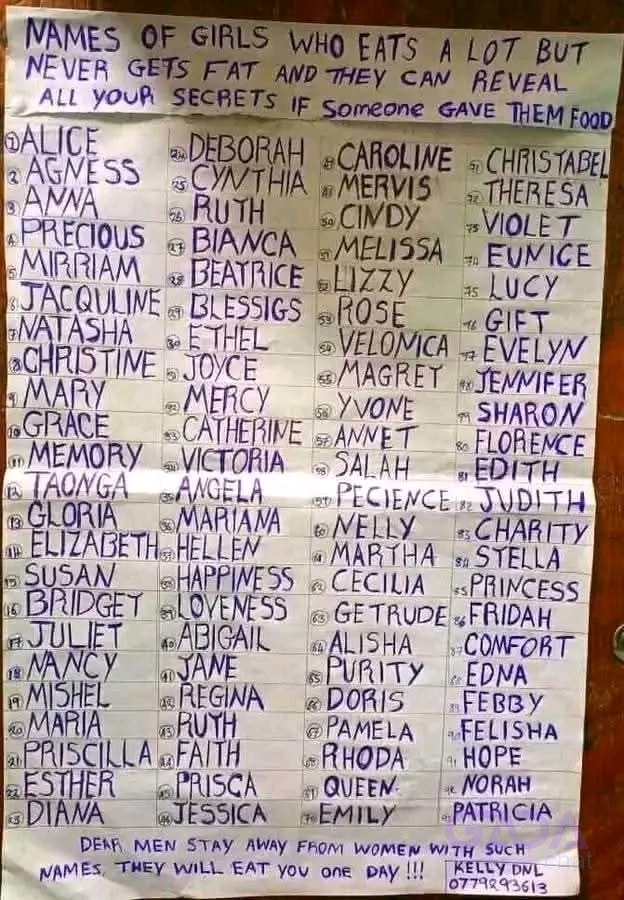 NAMES OF GIRLS WHO EATS A LOT BUT
NEVER GETS FAT AND THEY CAN REVEAL
ALL YOUR SECRETS IF Someone GAVE THEM FOOD
1 ALICE
2 AGNESS
3 ANNA
4 PRECIOUS
5 MIRRIAM
6 JACQULINE
7 NATASHA
8 CHRISTINE
9 MARY
10 GRACE
11 MEMORY
12 TAONGA
13 GLORIA
14 ELIZABETH
15 SUSAN
16 BRIDGET
17 JULIET
18 NANCY
19 MISHEL
20 MARIA
21 PRISCILLA
22 ESTHER
23 DIANA
24 DEBORAH
25 CYNTHIA
26 RUTH
27 BIANCA
28 BEATRICE
29 BLESSIGS
30 ETHEL
31 JOYCE
32 MERCY
33 CATHERINE
34 VICTORIA
35 ANGELA
36 MARIANA
37 HELLEN
38 HAPPINESS
39 LOVENESS
40 ABIGAIL
41 JANE
42 REGINA
43 RUTH
44 FAITH
45 PRISCA
46 JESSICA
CAROLINE
MERVIS
50 CINDY
51 MELISSA
52 LIZZY
53 ROSE
54 VELOMICA
55 MAGRET
56 YVONE
57 ANNET
58 SALAH
59 PECIENCE
60 NELLY
61 MARTHA
62 CECILIA
63 GETRUDE
64 ALISHA
65 PURITY
66 DORIS
67 PAMELA
68 RHODA
69 QUEEN
70 EMILY
71 CHRISTABEL
72 THERESA
73 VIOLET
74 EUNICE
75 LUCY
76 GIFT
77 EVELYN
78 JENNIFER
79 SHARON
80 FLORENCE
81 EDITH
82 JUDITH
83 CHARITY
84 STELLA
85 PRINCESS
86 FRIDAH
87 COMFORT
88 EDNA
89 FEBBY
90 FELISHA
91 HOPE
92 NORAH
93 PATRICIA
DEAR MEN STAY AWAY FROM WOMEN WITH SUCH
NAMES, THEY WILL EAT YOU ONE DAY !!!
KELLY DNL
0779293613